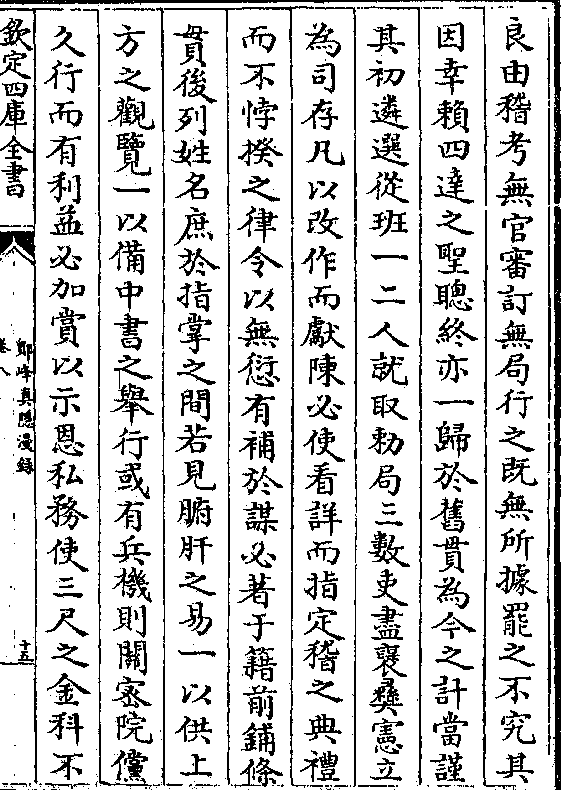 良由稽考無官審訂無局行之既無所據罷之不究其
因幸賴四達之聖聰終亦一歸於舊貫為今之計當謹
其初遴選從班一二人就取勑局三數吏盡裒彝憲立
為司存凡以改作而獻陳必使看詳而指定稽之典禮
而不悖揆之律令以無愆有補於謀必著于籍前鋪條
貫後列姓名庶於指掌之間若見腑肝之易一以供上
方之觀覽一以備中書之舉行或有兵機則關宻院儻
久行而有利益必加賞以示恩私務使三尺之金科不
欽定四庫全書
鄮峰真隱漫錄
卷八
十五